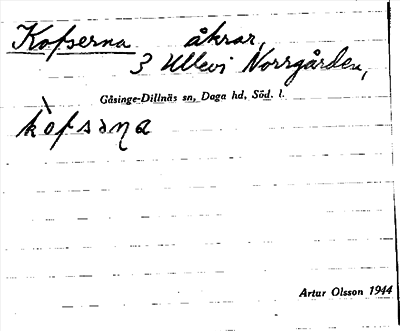 Kofserna åkrar,
3 Ullevi Norrgården,
Gåsinge-Dillnäs sn, Daga hd, Söd. l.
kòfsəɳa
Artur Olsson 1944